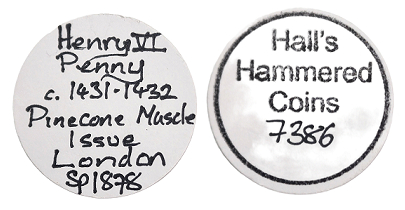 Henry VI
Penny
c. 1431-1432
Pinecone Muscle
Issue
London
SP1878
Hall's
Hammered
Coins
7386